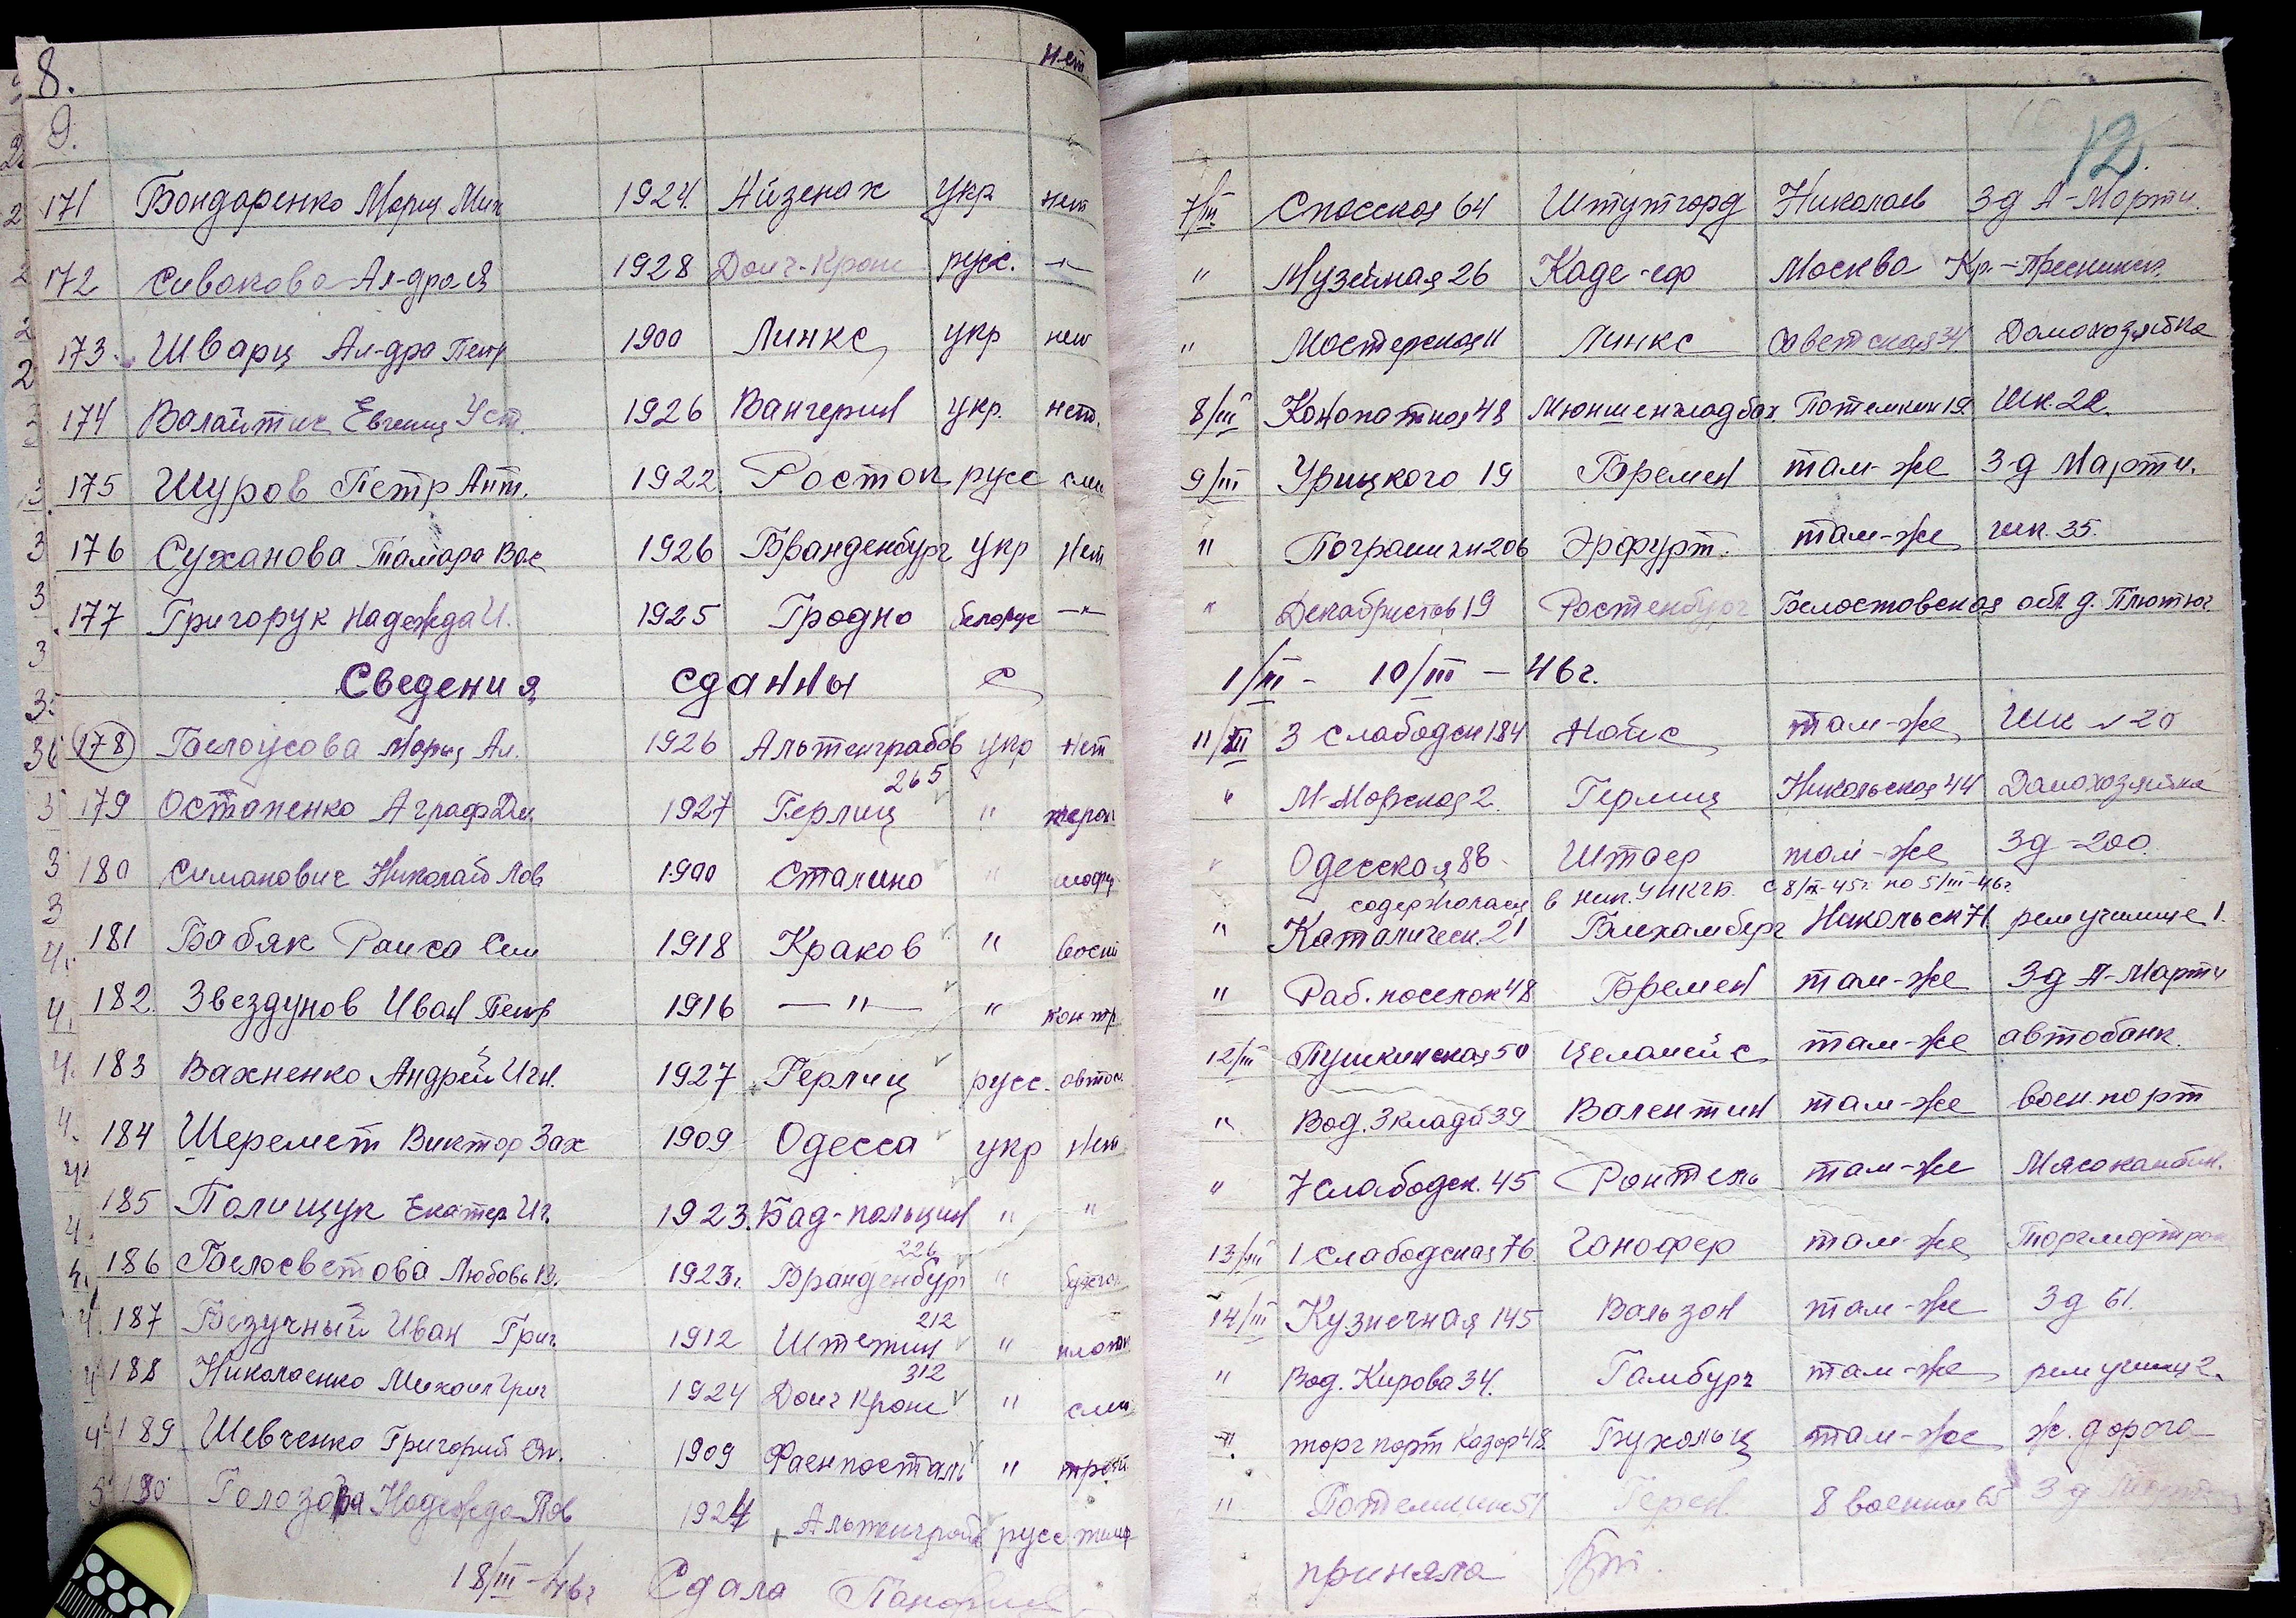 8. нет
9. 12
171 Бондаренко Мария Мих 1924 Айзенах укр нет 7/III Спасская 64 Штутгорд Николаев З-д А-Марти.
172 Сивакова Ал-дра Я 1928 Доич-Крон русс. —"— " Музейная 26 Москва Кр.-Пресненск.
173. Шварц Ал-дра Петр 1900 Линкс укр нет " Мастерская 11 Линкс Советская 34 Домохозяйка
174 Валайтис Евгения Уст. 1926 Вангерин укр. нет. 8/III Конопатная 48 Мюншенгладбах. Потемкин 19 Шк. 22.
175 Шуров Петр Ант. 1922. Росток русс слес 9/III Урицкого 19 Бремен там-же З-д Марти.
176 Суханова Тамара Вас 1926 Бранденбург укр нет " Пограничн 206 Эрфурт. там-же шк. 35.
177 Григорук Надежда И. 1925 Гродно белорус —"— " Декабристов 19 Ростенбург Белостовская обл. д. Плютыч
Сведения сданны с 1/III - 10/III - 46 г.
178 Белоусова Мария Ал. 1926 Альтенграбов укр нет 11/III 3 слабодск 184 Нойс там-же Шк № 20
265
179 Остапенко Аграф Дм 1927 Герлиц " " М-Морская 2. Герлиц Никольская 44 Домохозяйка
180 Симанович Николай Пав 1900 Сталино " " Одесская 88 Штаер там-же З-д -200.
содержалась в ник. УНКГБ. с 8/IX-45 г. по 5/III-46 г.
181 Бабяк Раиса Сем 1918 Краков " восп " Каталическ. 21 Блехамберг Никольск 71. рем училище 1.
182. Звездунов Иван Петр 1916 —"— " контр " Раб. поселок 48 Бремен там-же З-д А-Марти
183 Вахненко Андрей Игн. 1927 Герлиц русс. автос. 12/III Пушкинская 50 Целамейс там-же автобанк.
184 Шеремет Виктор Зах 1909 Одесса укр нет " Вод. 3 кладб 39 Валентин там-же воен. порт
185 Полищук Екатер Иг. 1923. Бад-польцин " " " 7 слабодск. 45 там-же Мясокамбин.
226
186 Белосветова Любовь В. 1923 г. Бранденбург " 13/III 1 слабодская 76. Ганофер там-же
212
187 Безучный Иван Григ. 1912 Штетин " плотн 14/III Кузнечная 145 Вальзон там-же З-д 61.
312
188 Николаенко Михаил Григ 1924 Доич Крон " слес " Вод. Кирова 34. Гамбург там-же рем училищ 2.
189 Шевченко Григорий Ст. 1909 " " торг порт Казар 48. Бухольц там-же ж. дорога
190 Голозова Надежда Пав 1924 Альтенграбов русс " Потемкин 51 8 военная 65 З-д
18/III-46 г Сдала приняла